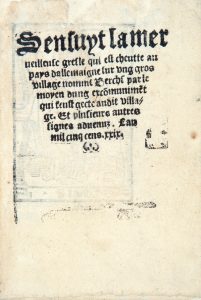 Sensuyt la mer
ueilleuse gresle qui est cheutte au
pays dallemaigne sur vng gros
village nomme Berchs par le
moyen dung excõmunimẽt
qui feust gecte andit villa-
ge. Et plusieurs autres
signes aduenuz. Lan
mil cinq cens. xxix.